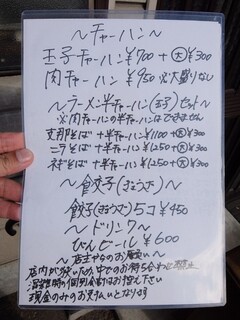 ～チャーハン～
玉子チャーハン ¥700 + 大 ¥300
肉チャーハン ¥950 ※大盛りなし
～ラーメン半チャーハン(玉子)セット～
※肉チャーハンの半チャーハンはできません
支那そば + 半チャーハン ¥1100 + 大 ¥300
ニラそば + 半チャーハン ¥1250 + 大 ¥300
ネギそば + 半チャーハン ¥1250 + 大 ¥300
～餃子(ぎょうざ)～
餃子(ぎょうざ) 5コ ¥450
～ドリンク～
びんビール ¥600
～店主からのお願い～
店内が狭いため、中でのお待ち合わせ禁止
混雑時の個別会計はお控え下さい
現金のみのお支払いとなります